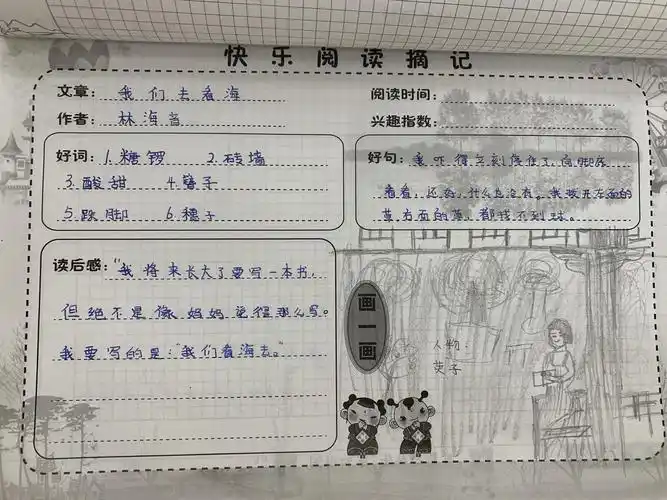 快乐阅读摘记
文章: 我们去看海
阅读时间:
作者: 林海音
兴趣指数:
好词: 1.糖锣 2.砖墙
3.酸甜 4.簪子
5.跺脚 6.穗子
好句: 我吓得立刻停住了,向脚底
看看,还好,什么也没有。我拨开左面的
草右面的草,都找不到球。
读后感: "我将来长大了要写一本书,
但绝不是像妈妈觉得那么写。
我要写的是:"我们看海去。"
画一画
人物:
英子